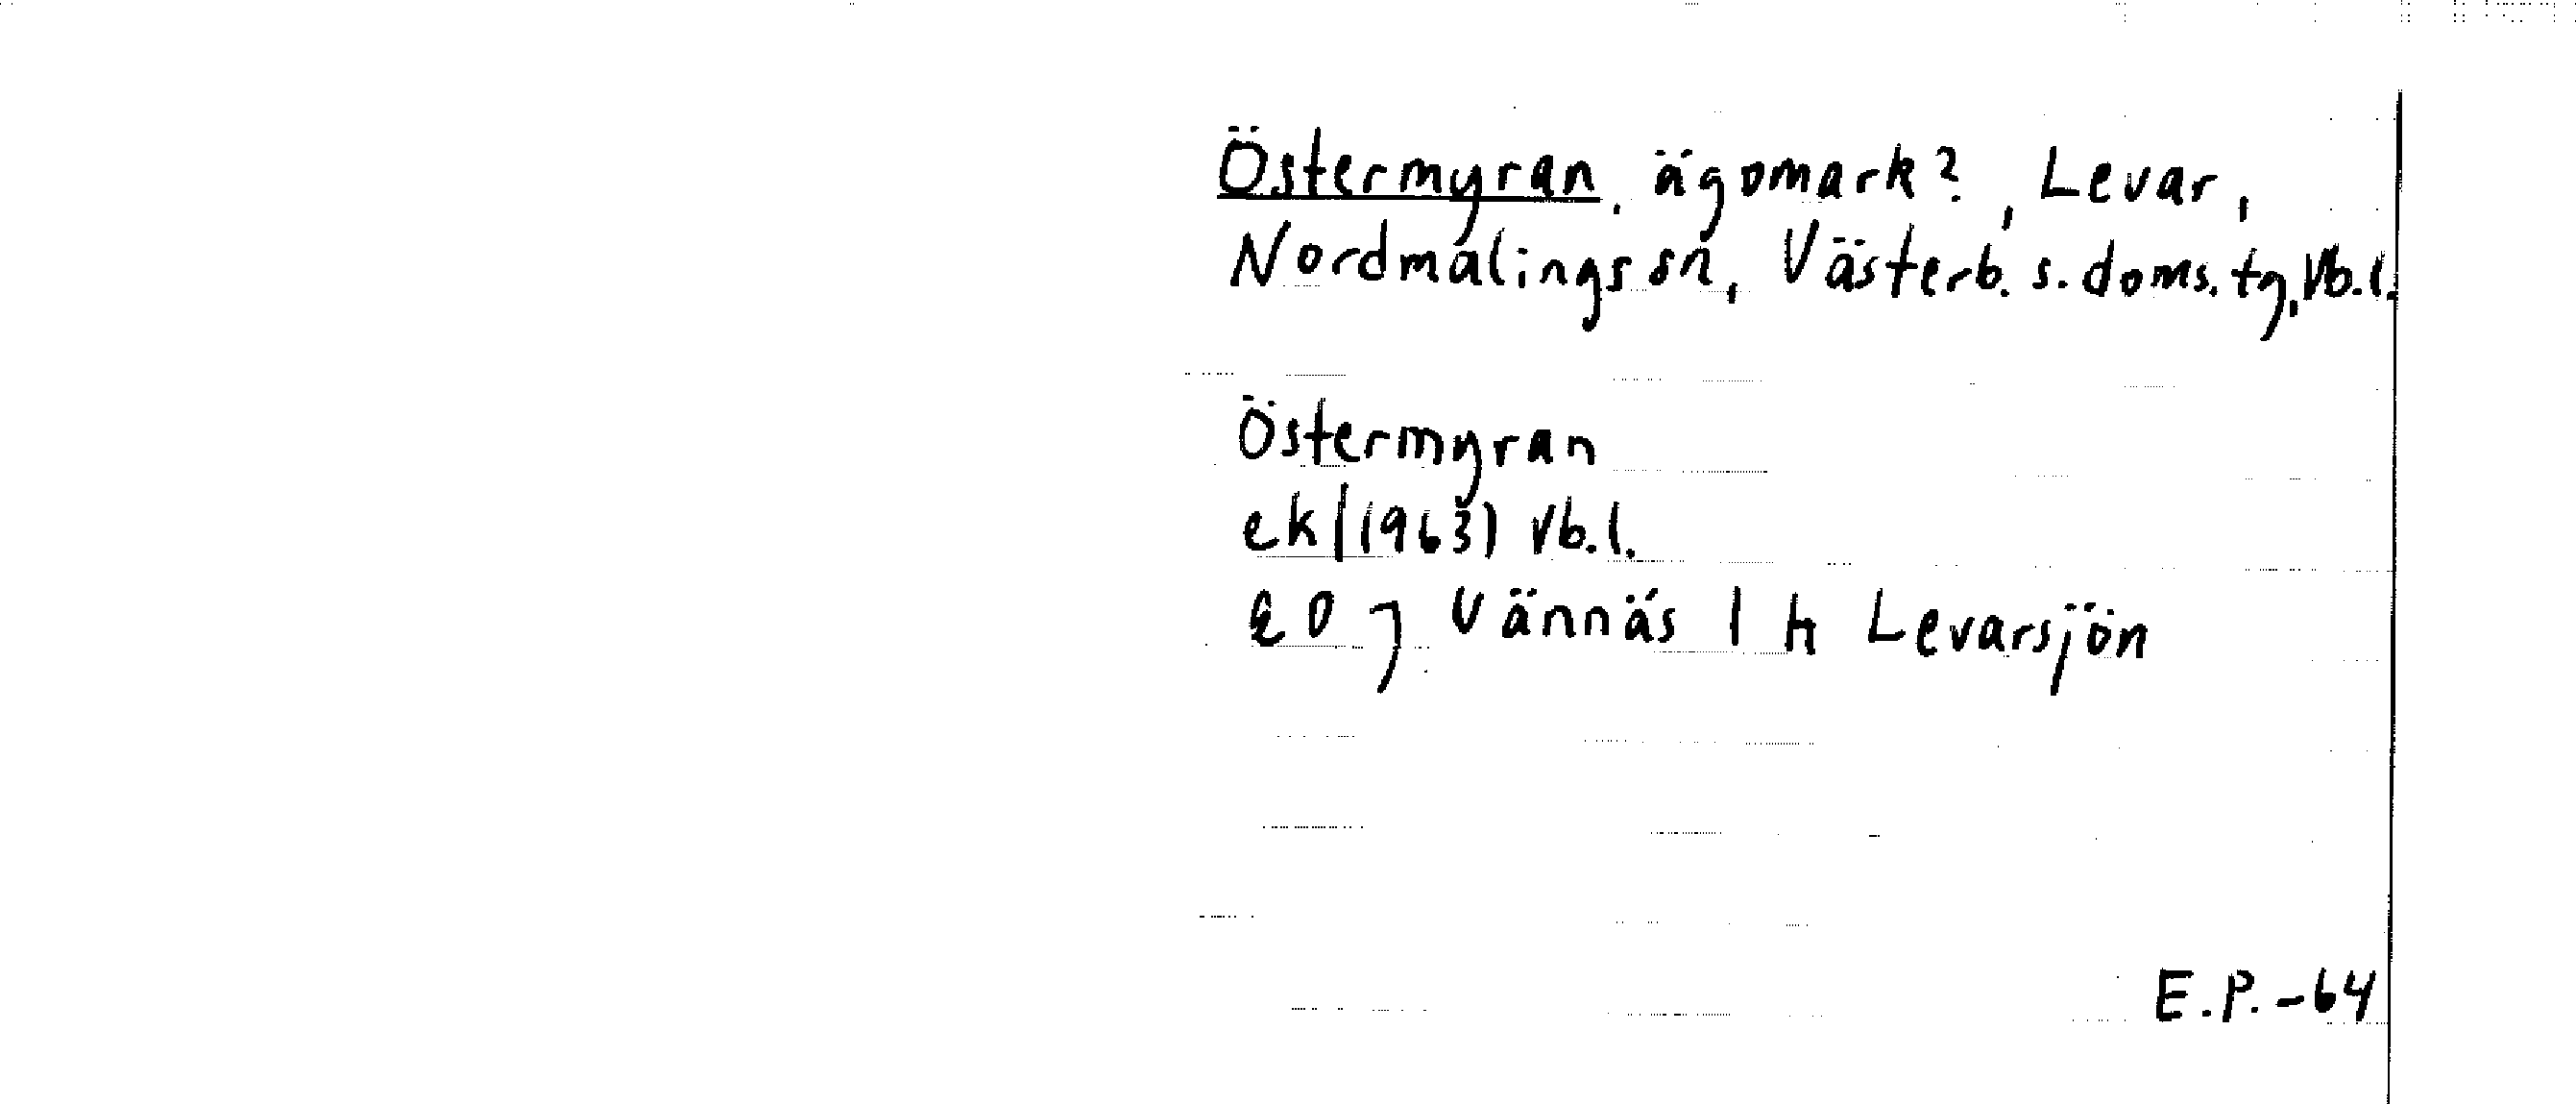 Östermyran, ägomark?, Levar,
Nordmalings sn, Västerb. s. doms. tg, Vb.l.
Östermyran
ek (1963) Vb.l.
20 J Vännäs 1 h Levarsjön
E.P. -64